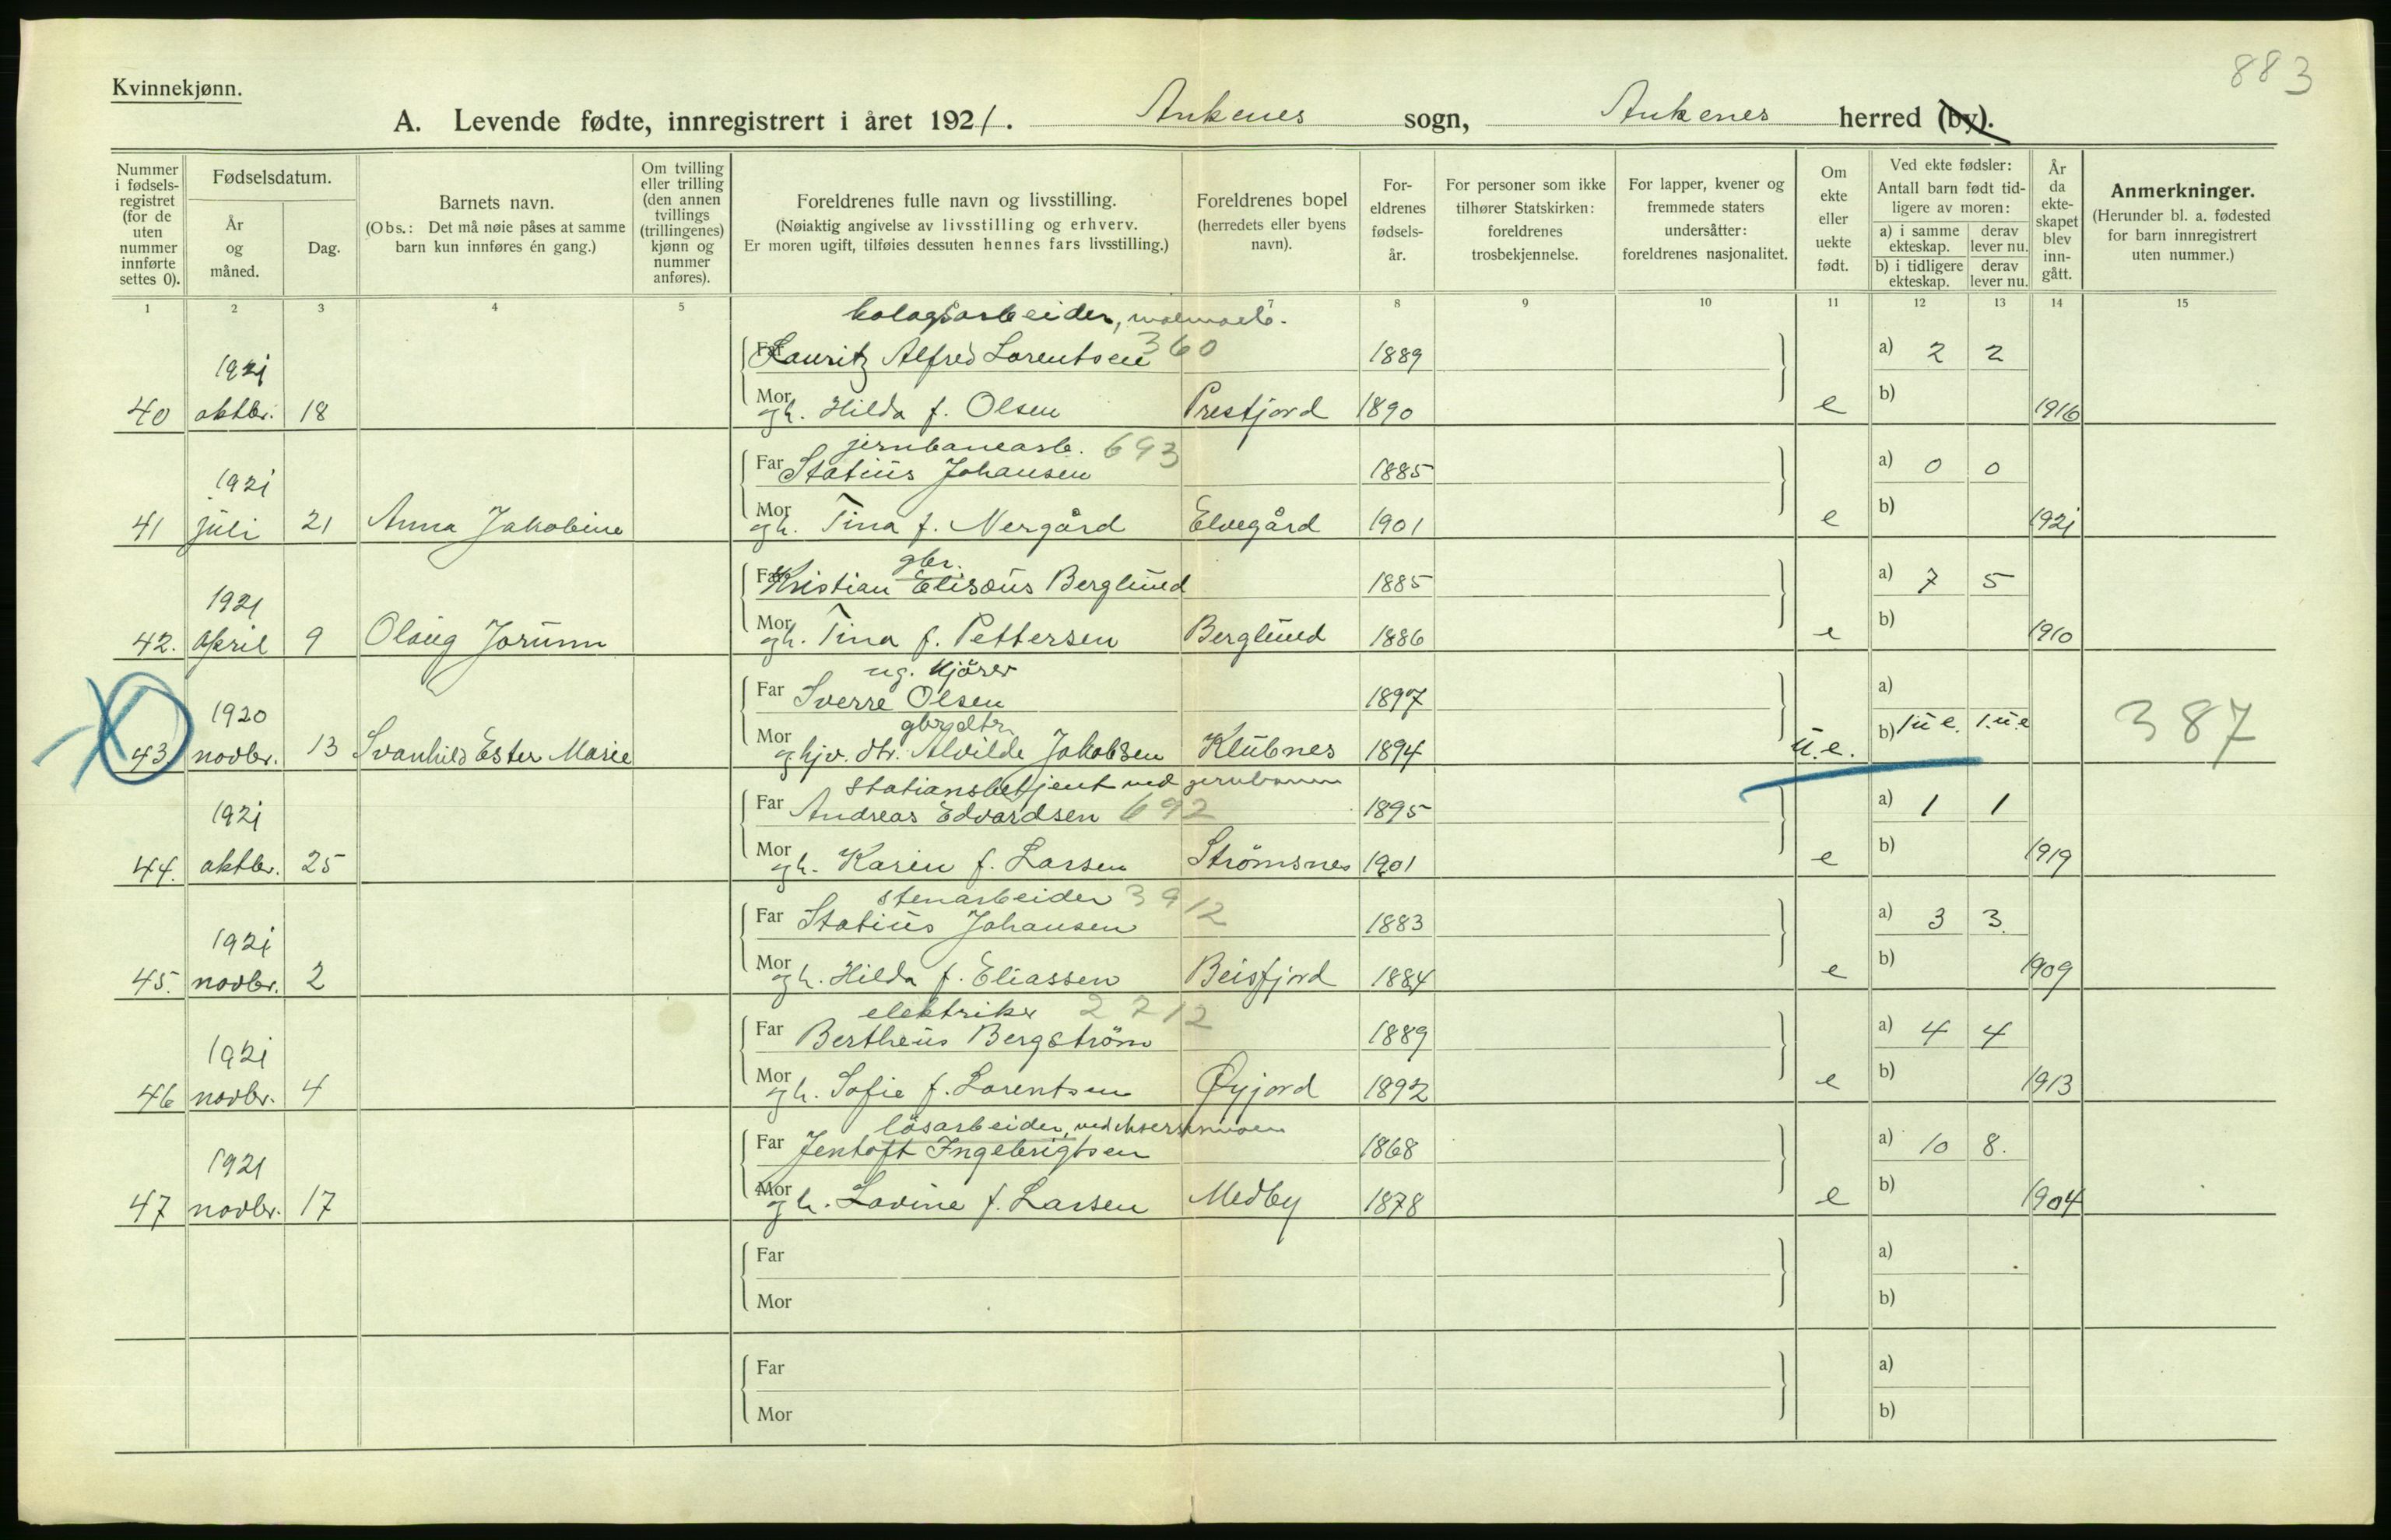 883
Kvinnekjønn.
A. Levende fødte, innregistrert i året 1921. Ankenes sogn, Ankenes herred (by).
Nummer i fødsels-registret (for de uten nummer innførte settes 0).
Fødselsdatum.
År og måned.
Dag.
Barnets navn.
(Obs.: Det må nøie påses at samme barn kun innføres én gang.)
Om tvilling eller trilling (den annen tvillings (trillingenes) kjønn og nummer anføres).
Foreldrenes fulle navn og livsstilling.
(Nøiaktig angivelse av livsstilling og erhverv.
Er moren ugift, tilføies dessuten hennes fars livsstilling.)
Foreldrenes bopel (herredets eller byens navn).
For-eldrenes fødsels-år.
For personer som ikke tilhører Statskirken: foreldrenes trosbekjennelse.
For lapper, kvener og fremmede staters undersåtter: foreldrenes nasjonalitet.
Om ekte eller uekte født.
Ved ekte fødsler:
Antall barn født tid-ligere av moren:
a) i samme ekteskap. derav lever nu.
b) i tidligere ekteskap. derav lever nu.
År da ekte-skapet blev inn-gått.
Anmerkninger.
(Herunder bl. a. fødested for barn innregistrert uten nummer.)
1 2 3 4 5 7 8 9 10 11 12 13 14 15
bolagsarbeider,
Far Lauritz Alfred Lorentsen 360 1889 a) 2 2
1921
40 oktbr. 18 Mor gh. Hilda f. Olsen Prestjord 1890 e b) 1916
jernbanearb. 693
Far Statius Johansen 1885 a) 0 0
1921
41 juli 21 Anna Jakobine Mor gh. Tina f. Nergård Elvegård 1901 e b) 1921
gbr.
Far Kristian Elisæus Berglund 1885 a) 7 5
1921
42. April 9 Olaug Jorunn Mor gh. Tina f. Pettersen Berglund 1886 e b) 1910
ug. Kjører
Far Sverre Olsen 1897 a)
1920 gbrgdtr.
43. novbr. 13 Svanhild Ester Marie Mor ghjv. dtr. Alvilde Jakobsen Klubnes 1894 u.e. b) 1 u e. 1. u.e 387
stationsbetjent ved jernbanen
Far Andreas Edvardsen 692 1895 a) 1 1
1921
44. oktbr. 25 Mor gh. Karin f. Larsen Strømsnes 1901 e b) 1919
stenarbeider 3912
Far Statius Johansen 1883 a) 3 3.
1921
45. novbr. 2 Mor gh. Hilda f. Eliassen Beisfjord 1884 e b) 1909
elektriker 2712
Far Bertheus Bergstrøm 1889 a) 4 4
1921
46 novbr. 4 Mor gh. Sofie f. Lorentsen Øyjord 1892 e b) 1913
løsarbeider, ved
Far Jentoft Ingebrigtsen 1868 a) 10 8.
1921
47 novbr. 17 Mor gh. Lovine f. Larsen Medby 1878 e b) 1904
Far a)
Mor b)
Far a)
Mor b)